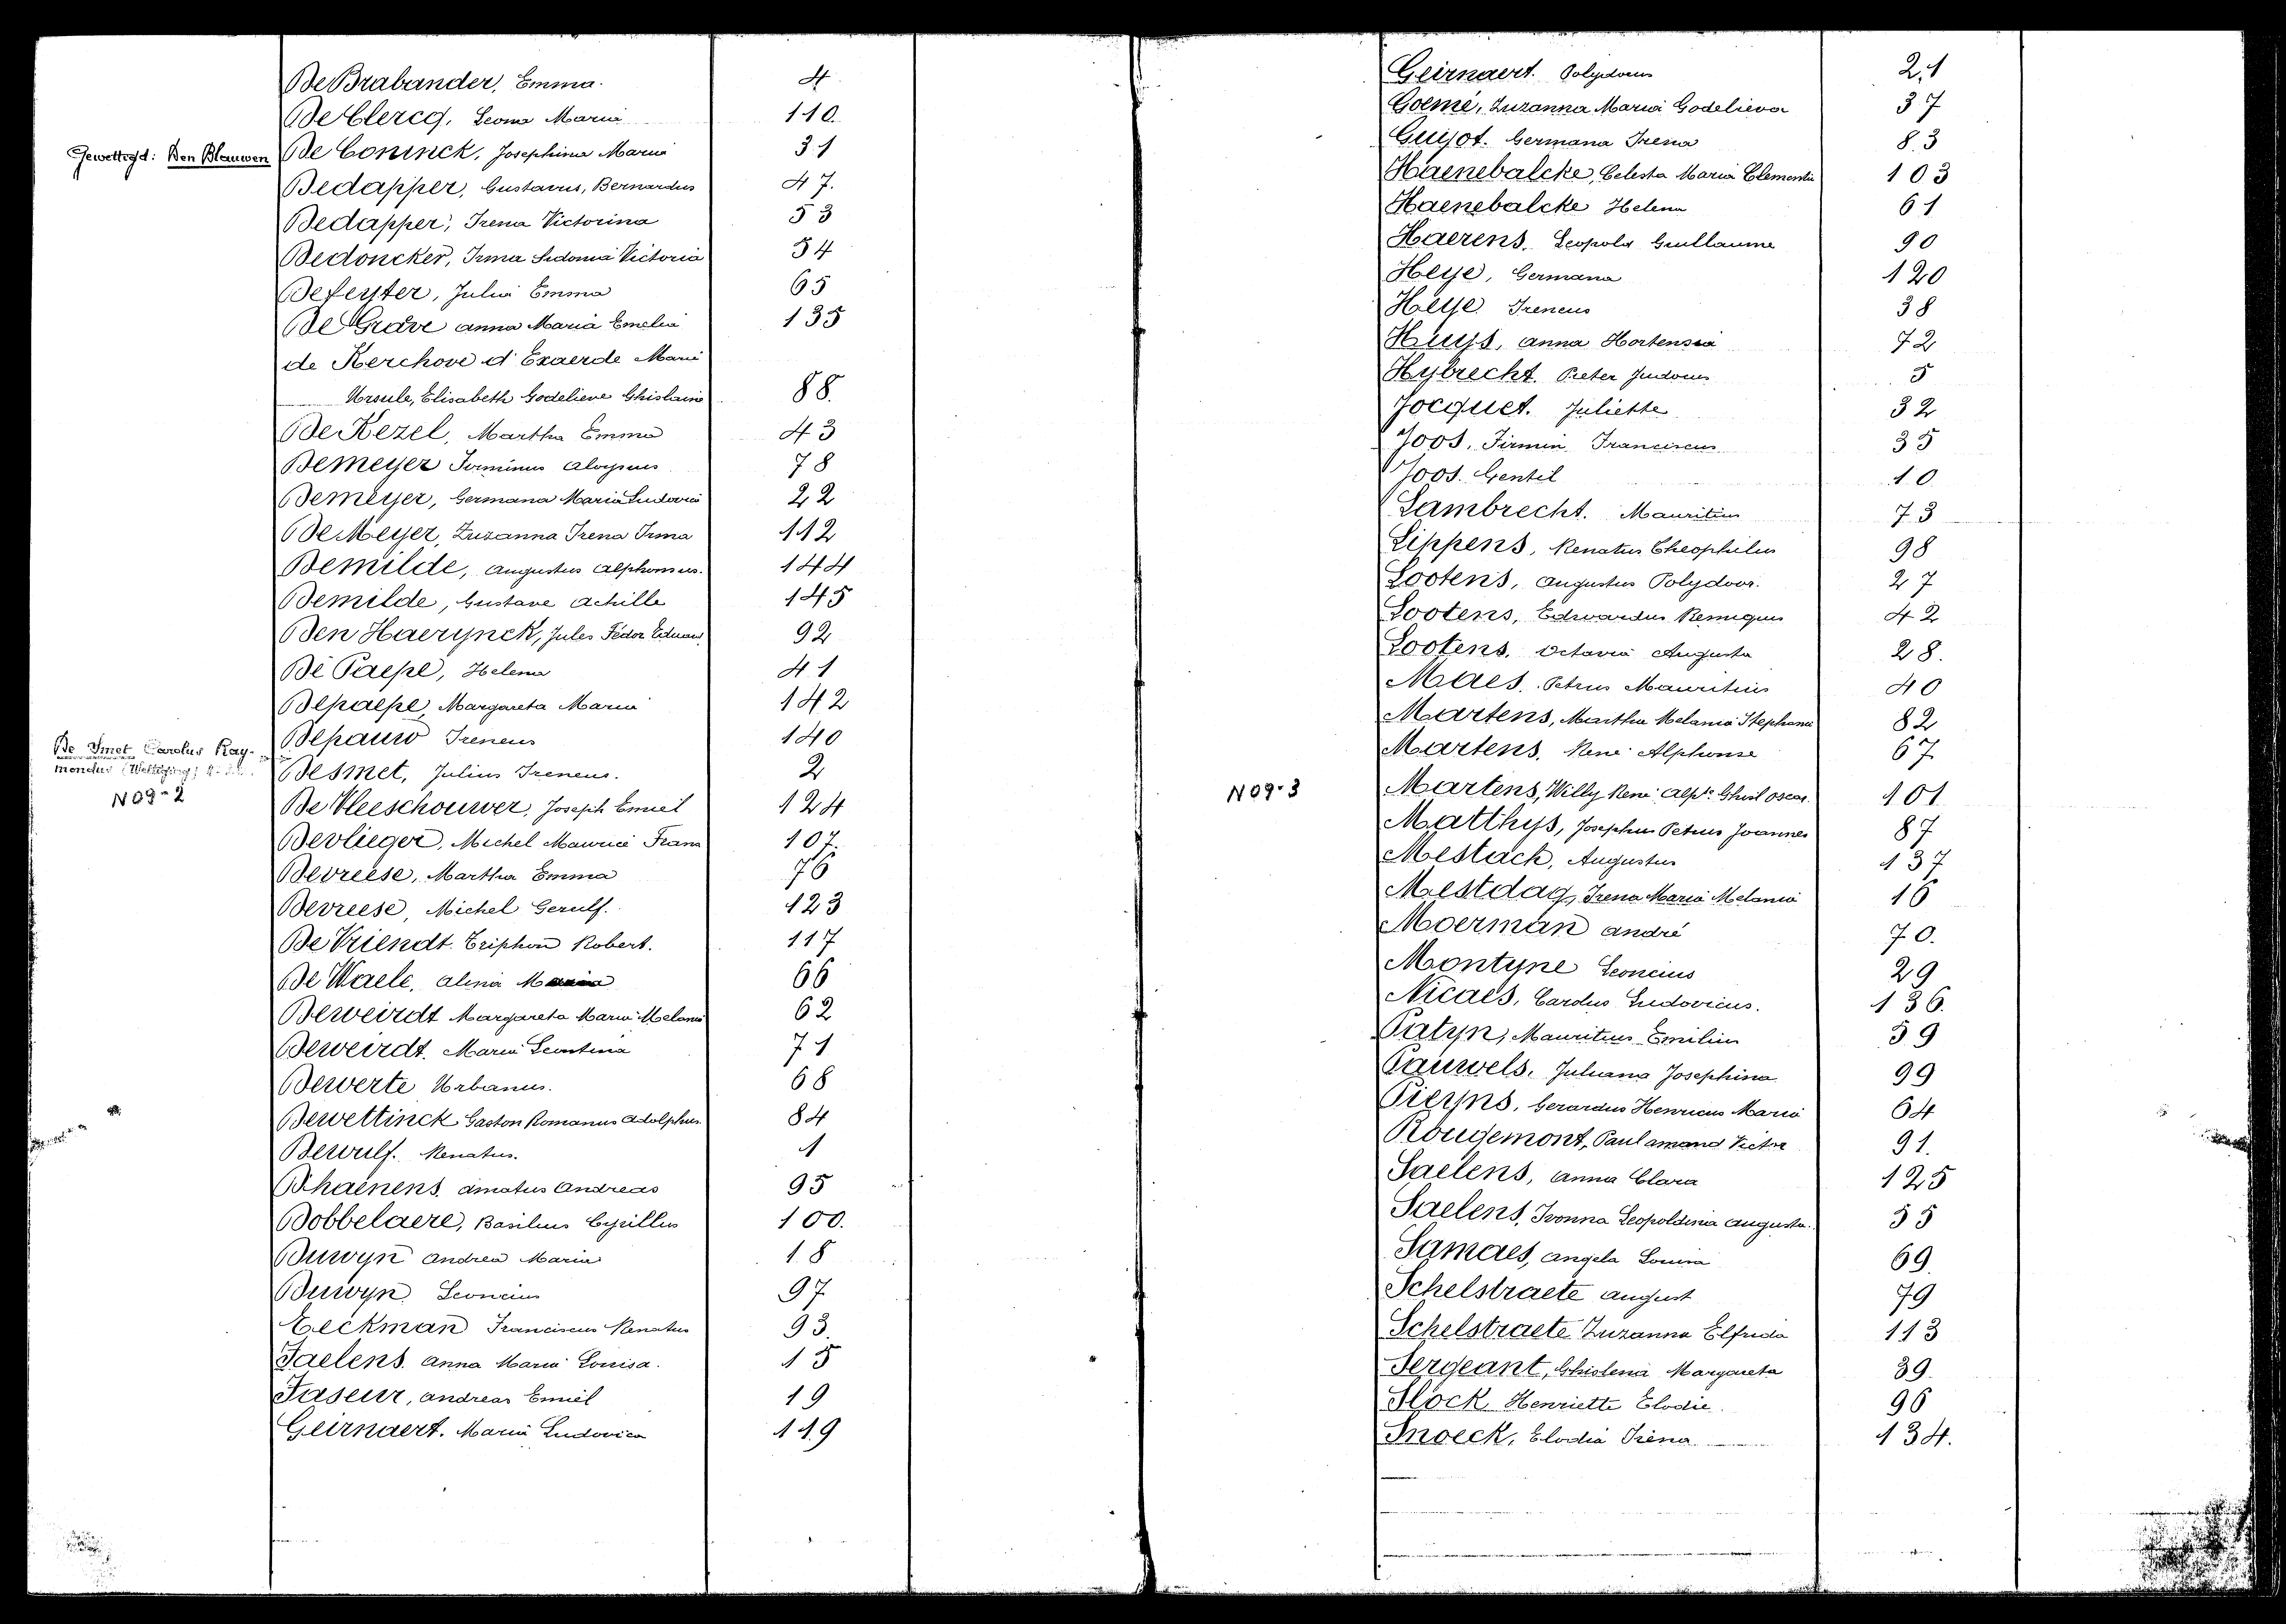 De Brabander, Emma. 4
De Clercq, Leona Maria 110.
Gewettigd: Den Blauwen
De Coninck, Josephina Maria 31
Dedapper, Gustavus, Bernardus 47.
Dedapper, Irena Victorina 53
Dedoncker, Irma Sidonia Victoria 54
Defeyter, Julia Emma 65
De Grave anna Maria Emelia 135
de Kerchove d'Exaerde Marie
Ursule, Elisabeth Godelieve Ghislaine 88.
De Kezel, Martha Emma 43
Demeyer Firminus Aloysius 78
Demeyer, Germana Maria Ludovica 22
De Meyer, Zuzanna Irena Irma 112
Demilde, Augustus Alphonsus. 144
Demilde, Gustave Achille 145
Den Haerynck, Jules Fédor Eduard 92
De Paepe, Helena 41
Depaepe, Margareta Maria 142
Depauw Ireneus 140
De Smet Carolus Ray-
mondus (Wettiging)
N 09-2
Desmet, Julius Ireneus. 2
De Vleeschouwer, Joseph Emiel 124
Devlieger, Michel Maurice Frans 107.
Devreese, Martha Emma 76
Devreese, Michel Gerulf. 123
De Vriendt Triphon Robert. 117
De Waele, Alina Maria 66
Deweirdt Margareta Maria Melania 62
Deweirdt. Maria Leontina 71
Dewerte Urbanus. 68
Dewettinck Gaston Romanus Adolphus. 84
Dewulf. Renatus. 1
Dhaenens, Amatus Andreas 95
Dobbelaere, Basilius Cyrillus 100.
Duwyn Andrea Maria 18
Duwyn Leoncius 97
Eeckman Franciscus Renatus 93.
Faelens. Anna Maria Louisa. 15
Faseur, Andreas Emiel 19
Geirnaert. Maria Ludovica 119
Geirnaert. Polydorus 21
Goemé, Zuzanna Maria Godelieva 37
Guyot. Germana Irena 83
Haenebalcke, Celesta Maria Clementia 103
Haenebalcke Helena 61
Haerens. Leopold Guillaume 90
Heye, Germana 120
Heye. Ireneus 38
Huys, Anna Hortensia 72
Hybrecht. Pieter Judocus 5
Jocquet. Juliette 32
Joos, Firmin Franciscus 35
Joos. Gentil 10
Lambrecht. Mauritius 73
Lippens, Renatus Theophilus 98
Lootens, Augustus Polydoor. 27
Lootens, Edwardus Remigius 42
Lootens. Octavia Augusta 28.
Maes. Petrus Mauritius 40
Martens, Martha Melania Stephania 82
Martens, René Alphonse 67
N 09-3
Martens, Willy René Alp. Ghisl Oscar. 101
Matthys, Josephus Petrus Joannes 87
Mestach, Augustus 137
Mestdag, Irena Maria Melania 16
Moerman André 70.
Montyne Leoncius 29
Nicaes, Carolus Ludovicus. 136.
Patyn, Mauritius Emilius 59
Pauwels, Juliana Josephina 99
Pieyns, Gerardus Henricus Maria 64
Rougemont, Paul Amand Victor 91.
Saelens, Anna Clara 125
Saelens, Ivonna Leopoldina Augusta. 55
Samaes, Angela Louisa 69
Schelstraete August 79
Schelstraete Zuzanna Elfrida 113
Sergeant, Ghislena Margareta 39.
Slock Henriette Elodie. 96
Snoeck, Elodia Irèna 134.